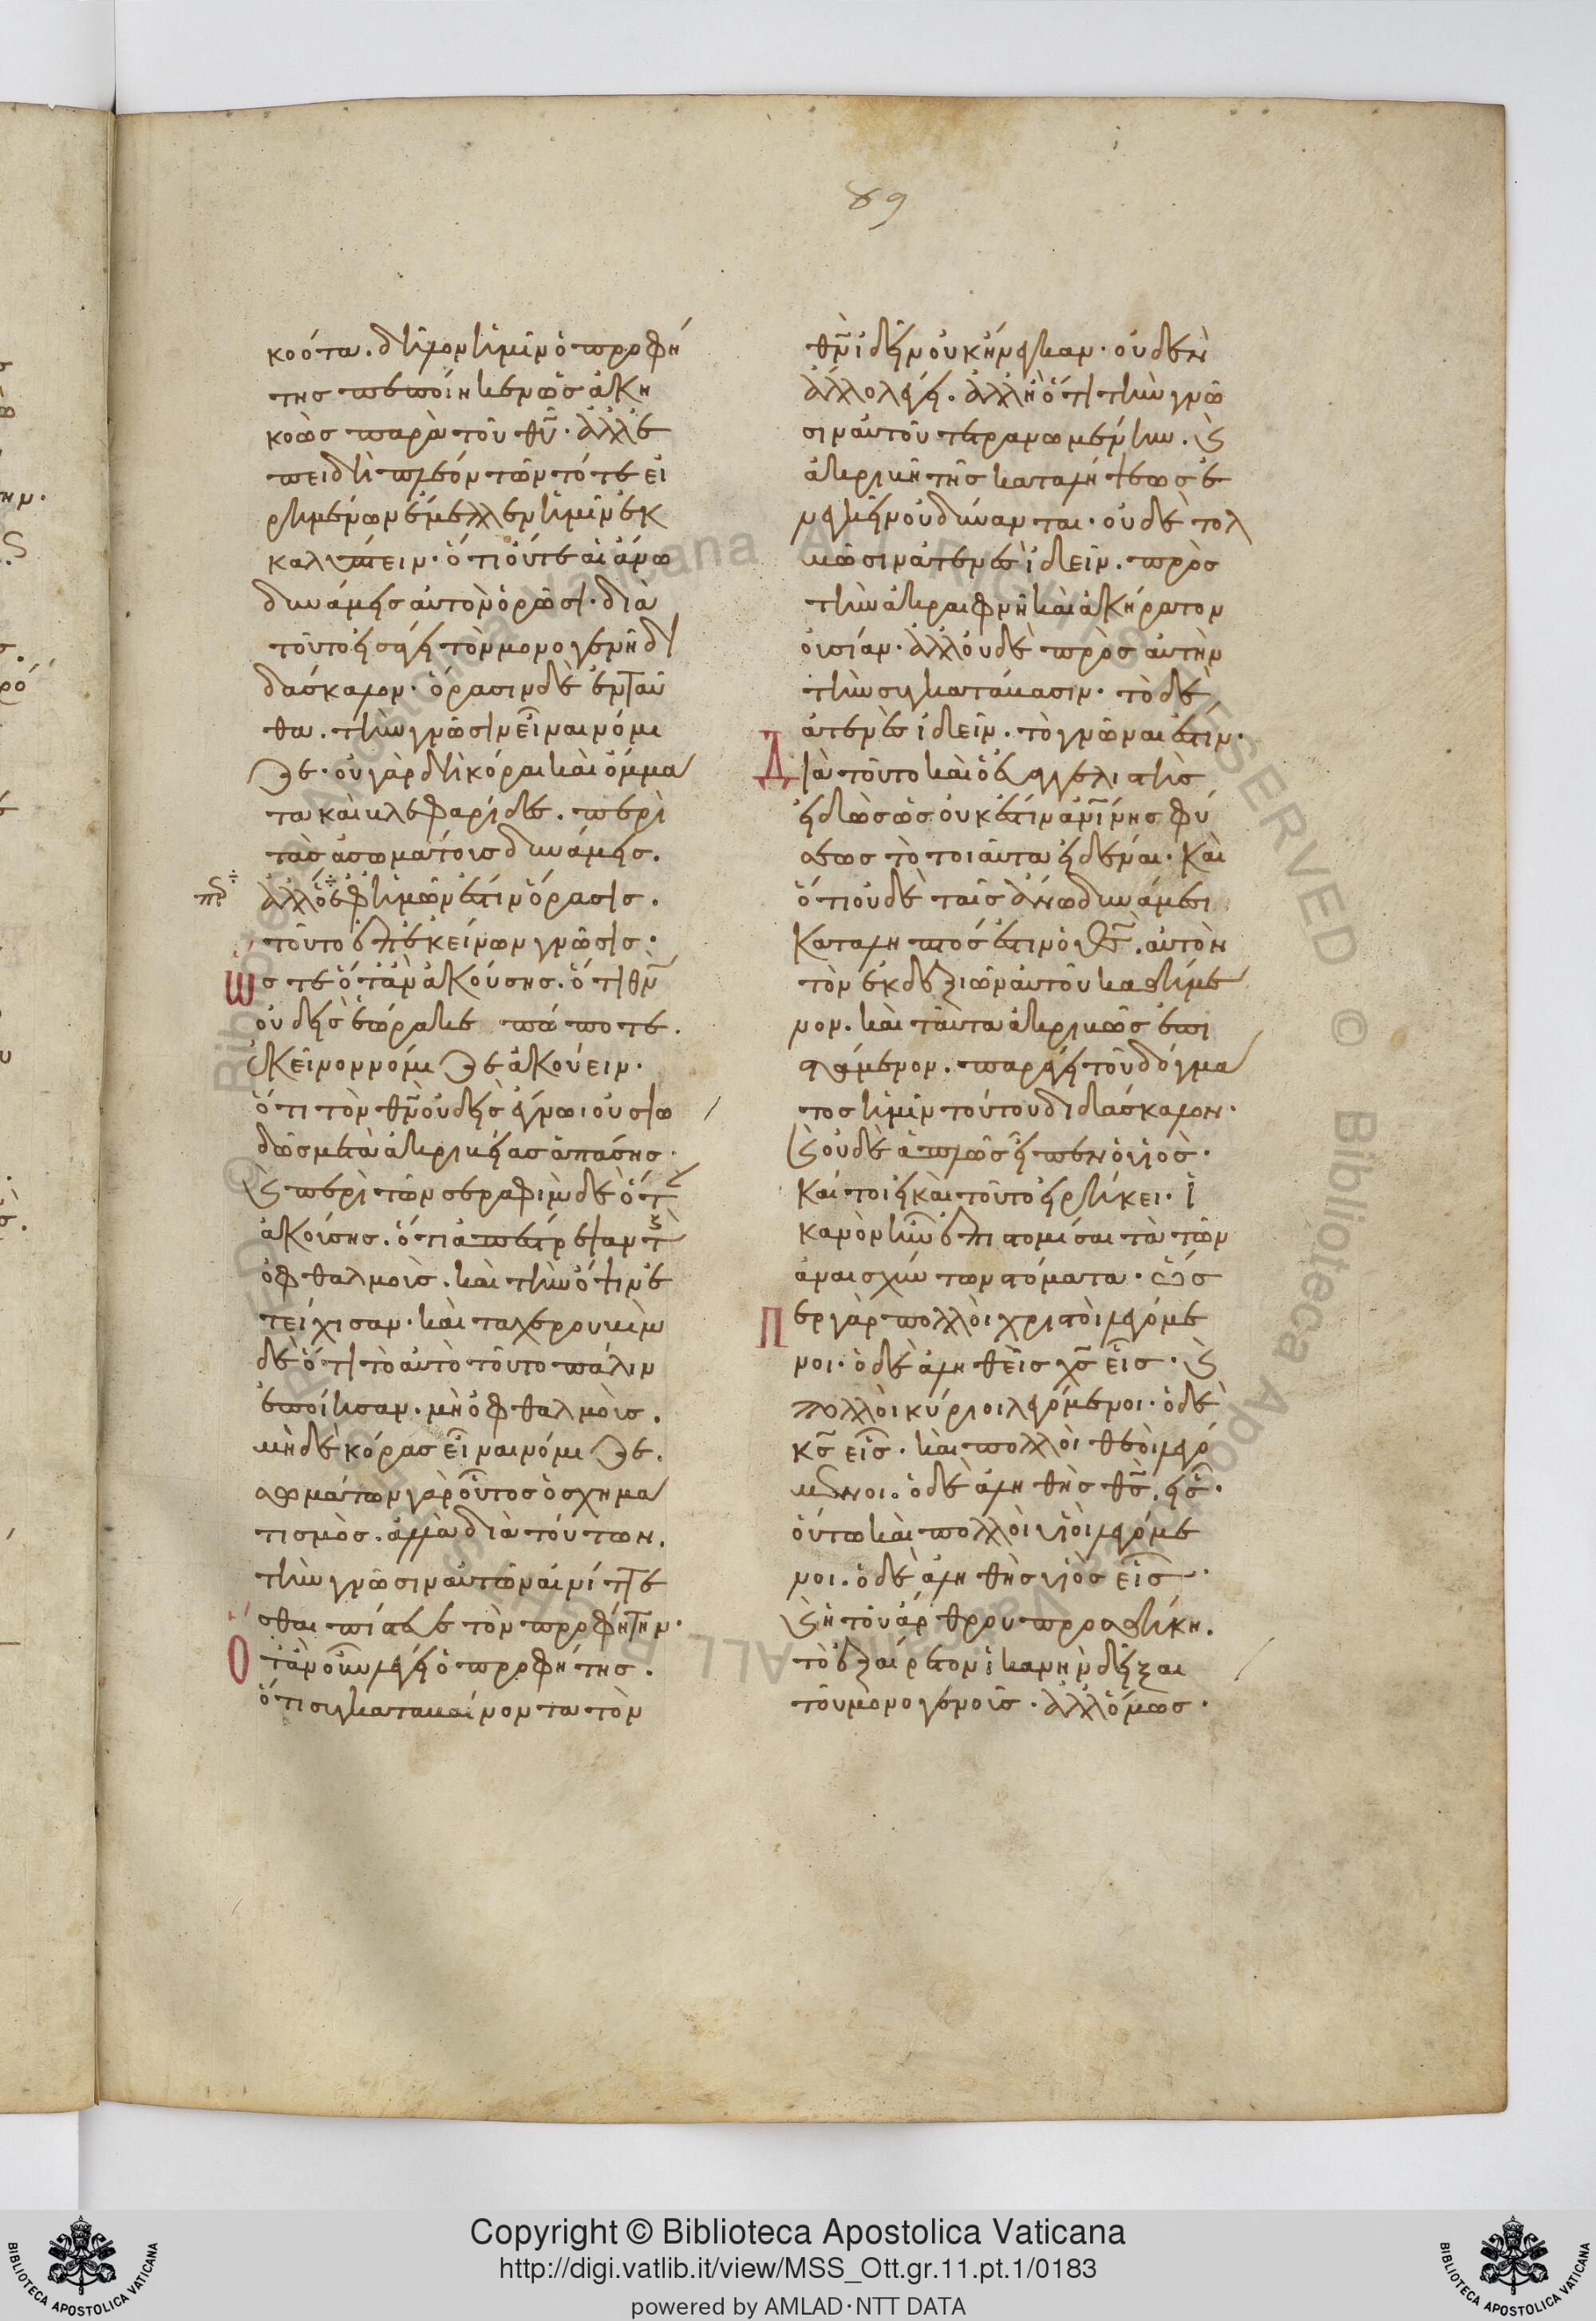 89
κοότα. δῆλον ἡμῖν ὁ προφή
της πεποίηκεν ὡς ἀκη
κοὼς παρὰ τοῦ θυ· ἀλλ ἐ
πειδὴ πλέον τῶν τότε εἰ
ρημένων ἔμελλεν ἡμῖν ἐκ
καλύπτειν· ὅτι οὔτε αἱ ἄνω
δυνάμεις αὐτὸν ὁρῶσι· διὰ
τοῦτο εἰσάγει τὸν μονογενῆ δι
δάσκαλον· ὅρασιν δὲ ἐνταῦ
θα. τὴν γνῶσιν εἶναι νόμι
ζε· οὐ γὰρ δὴ κόραι καὶ ὄμμα
τα καὶ βλεφαρίδες. περὶ
τὰς ἀσωμάτους δυνάμεις.
ἀλλ ὅ ἐφ ἡμῶν ἐστιν ὅρασις.
τοῦτο ἐπ ἐκείνων γνῶσις·
ὥστε ὅταν ἀκούσης. ὅτι θν
οὐδεὶς ἑώρακε πώποτε.
ἐκεῖνον νόμιζε ἀκούειν·
ὅτι τὸν θν οὐδεὶς ἔγνω οὐσιω
δῶς μετὰ ἀκριβείας ἁπάσης·
καὶ περὶ τῶν σεραφὶμ δὲ ὅτ
ἀκούσης. ὅτι ἀπέστρεψαν τ
ὀφθαλμοὺς. καὶ τὴν ὄψιν ἐ
τείχισαν· καὶ τὰ χερουβὶμ
δὲ ὅτι τὸ αὐτὸ τοῦτο πάλιν
ἐποίησαν. μὴ ὀφθαλμοὺς.
μηδὲ κόρας εἶναι νόμιζε.
σωμάτων γὰρ οὗτος ὁ σχημα
τισμὸς. ἀλλὰ διὰ τούτων.
τὴν γνῶσιν αὐτῶν αἰνίττε
σθαι πίστευε τὸν προφήτην·
ὅταν οὖν λέγει ὁ προφήτης.
ὅτι συγκαταβαίνοντα τὸν
θν ἰδεῖν οὐκ ἤνεγκαν· οὐδὲν
ἄλλο λέγει. ἀλλ ἢ ὅτι τὴν γνῶ
σιν αὐτοῦ τετρανωμένην. καὶ
ἀκριβῆ τῆς καταλήψεως ἐ
νεγκεῖν οὐ δύνανται· οὐδὲ τολ
μῶσιν ἀτενὲς ἰδεῖν. πρὸς
τὴν ἀκραιφνῆ καὶ ἀκήρατον
οὐσίαν· ἀλλ οὐδὲ πρὸς αὐτὴν
τὴν συγκατάβασιν· τὸ δὲ
ἀτενὲς ἰδεῖν. τὸ γνῶναι ἐστίν·
Διὰ τοῦτο καὶ ὁ εὐαγγελιστὴς
εἰδὼς ὡς οὐκ ἔστιν ἀνίνης φύ
σεως τὸ τοιαῦτα εἰδέναι· Καὶ
ὅτι οὐδὲ ταῖς ἄνω δυνάμεσι
Καταληπτός ἐστιν ὁ θς. αὐτὸν
τὸν ἐκ δεξιῶν αὐτοῦ καθήμε
νον. καὶ ταῦτα ἀκριβῶς ἐπι
στάμενον. παράγει τοῦ δόγμα
τος ἡμῖν τούτου διδάσκαλον·
καὶ οὐδὲ ἁπλῶς εἶπεν ὁ υἱὸς·
Καίτοι εἰ καὶ τοῦτο εἰρήκει· ἱ
κανὸν ἦν ἐπιστομίσαι τὰ τῶν
ἀναισχύντων στόματα· ὥσ
Περ γὰρ πολλοὶ χριστοὶ λεγόμε
νοι· ὁ δὲ ἀληθεῖς χς εἷς· καὶ
πολλοὶ κύριοι λεγόμενοι· ὁ δὲ
κς εἷς· καὶ πολλοὶ θεοὶ λεγό
μενοι. ὁ δὲ ἀληθὴς θς, εἷς·
οὕτω καὶ πολλοὶ υἱοὶ λεγόμε
νοι. ὁ δὲ ἀληθὴς υἱὸς εἷς·
καὶ ἡ τοῦ ἄρθρου προσθήκη.
τὸ ἐξαίρετον ἱκανὴν δεῖξαι
τοῦ μονογενοῦς· ἀλλ ὅμως·
Copyright © Biblioteca Apostolica Vaticana
http://digi.vatlib.it/view/MSS_Ott.gr.11.pt.1/0183
powered by AMLAD·NTT DATA